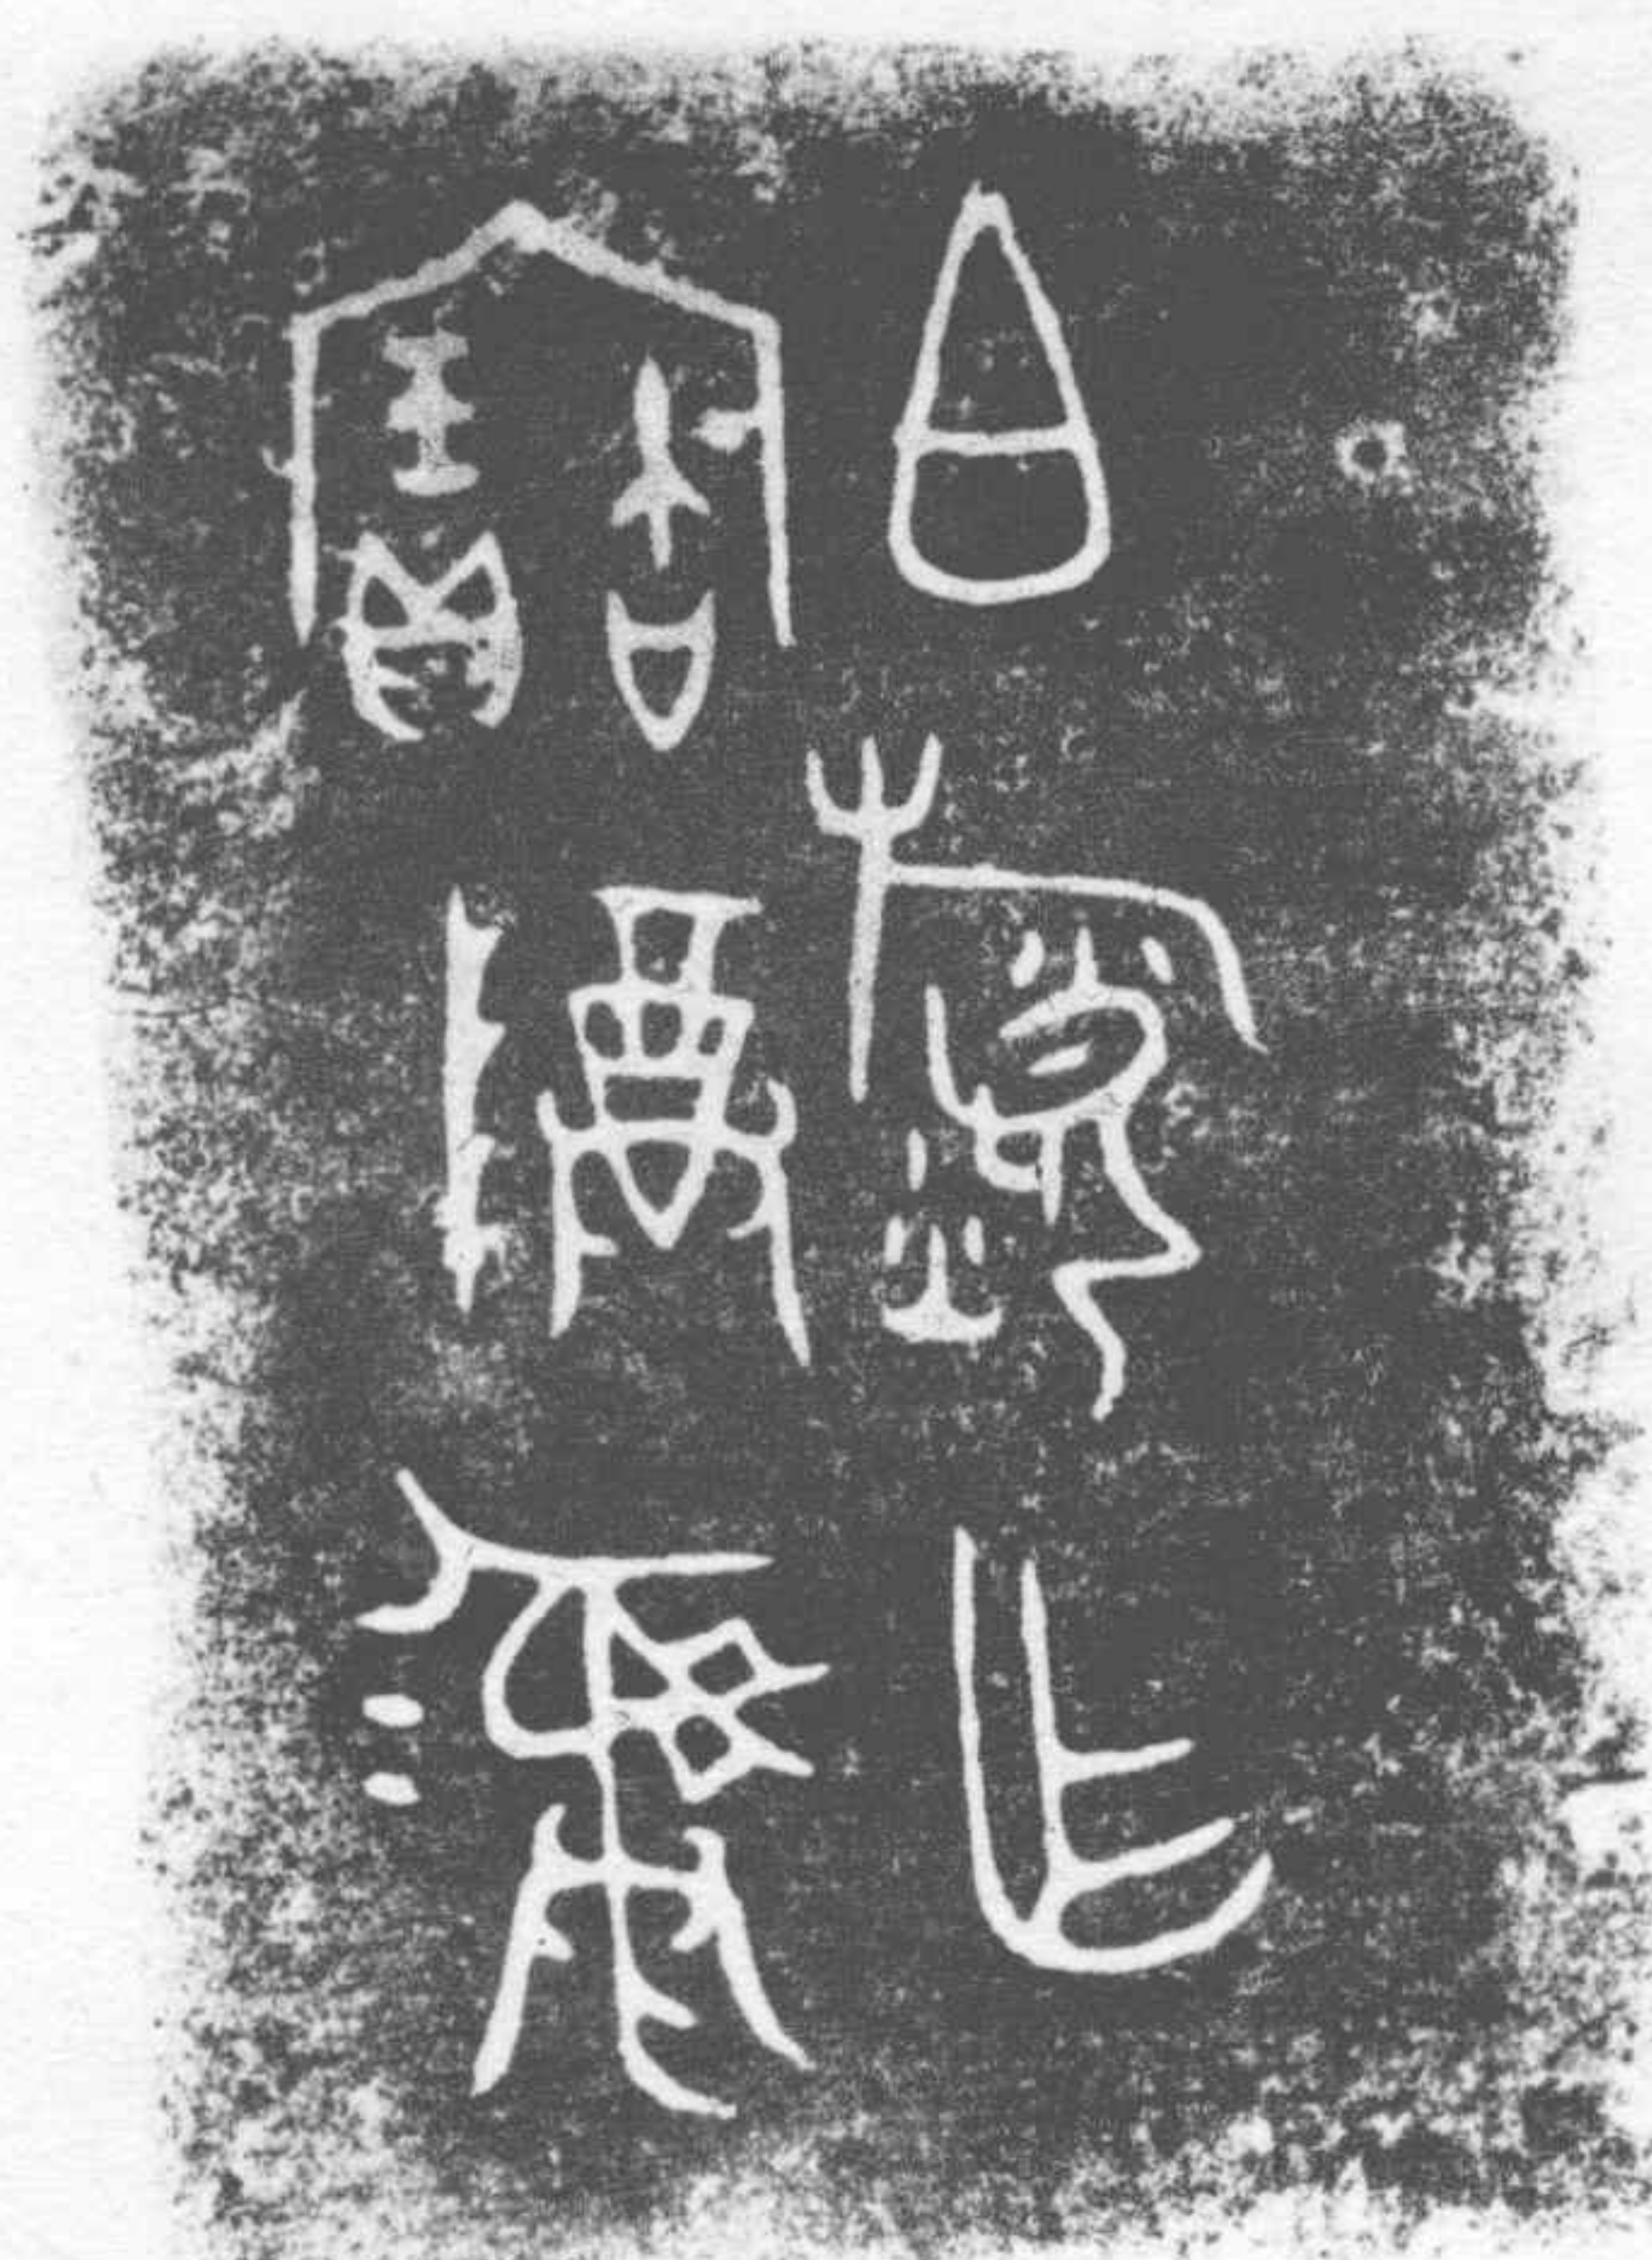 白乍
寶尊彝